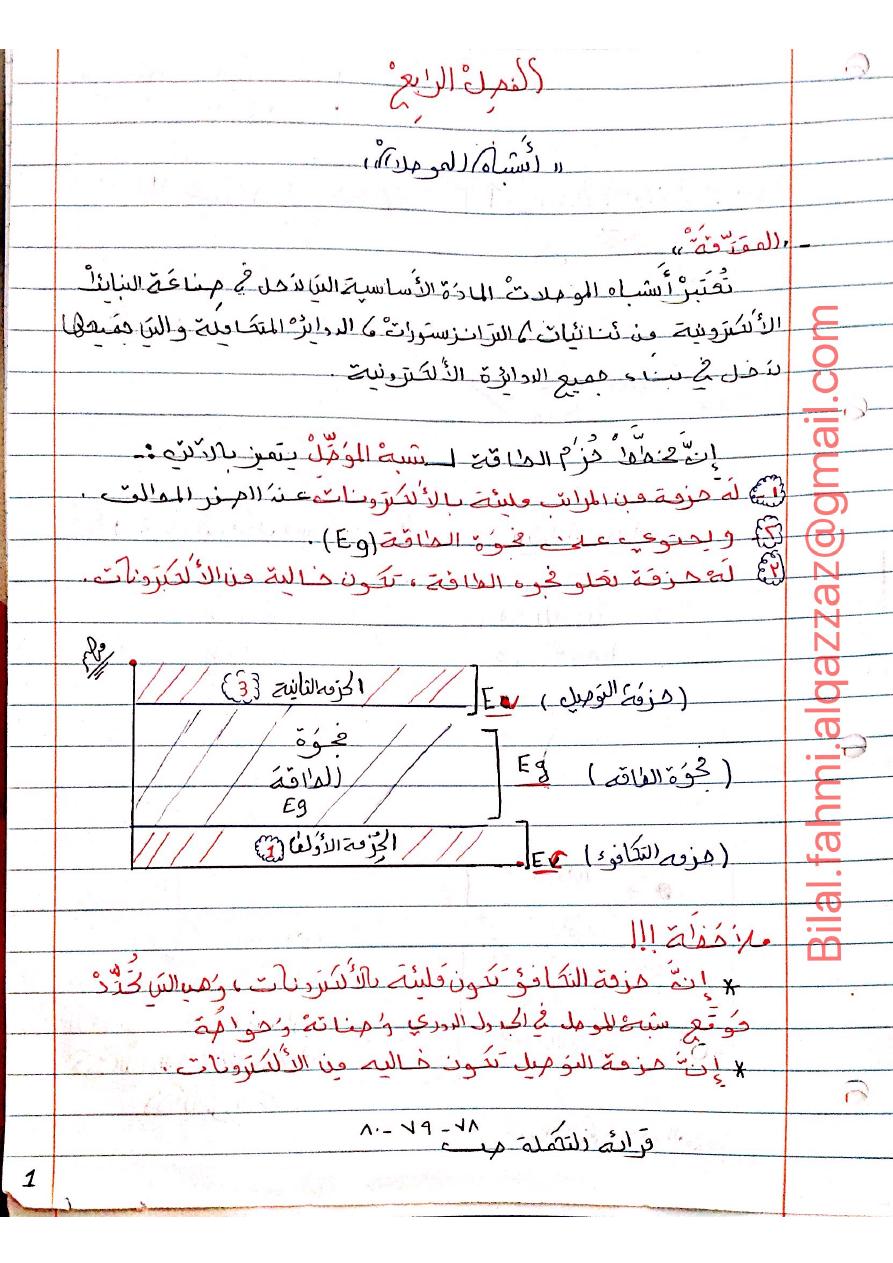 الفصل الرابع
"أشباه الموصلات"
- "المقدمة"
تعتبر أشباه الموصلات المادة الأساسية التي تدخل في صناعة النبائط
الألكترونية من ثنائيات، الترانزستورات، الدوائر المتكاملة والتي جميعها
تدخل في بناء جميع الدوائرة الألكترونية.
إنَّ مخطط حُزم الطاقة لـ شبة الموَصِّل يتميز بالآتي :-
1- لهَ حزمة من المراتب مليئة بالألكترونات عند الصفر المطلق.
2- ويحتوي على فجوة الطاقة (Eg).
٣ لهُ حزمة تعلو فجوه الطاقة، تكون خالية من الألكترونات.
مهم
الحزمه الثانية {3}
(حزمة التوصيل)
فجوة
الطاقة
Eg
Eg (فجوة الطاقه)
الحزمة الأولى {1}
Ev (حزمه التكافؤ)
ملاحظة !!!
* إنَّ حزمة التكافؤ تكون مليئة بالألكترونات، وهي التي تحُدِّد
موقع شبة الموصل في الجدول الدوري وصفاتة وخواصة
* إنَّ حزمة التوصيل تكون خاليه من الألكترونات.
قرائه التكملة ص ٧٨-٧٩-٨٠
1
Bilal.fahmi.alqazzaz@gmail.com